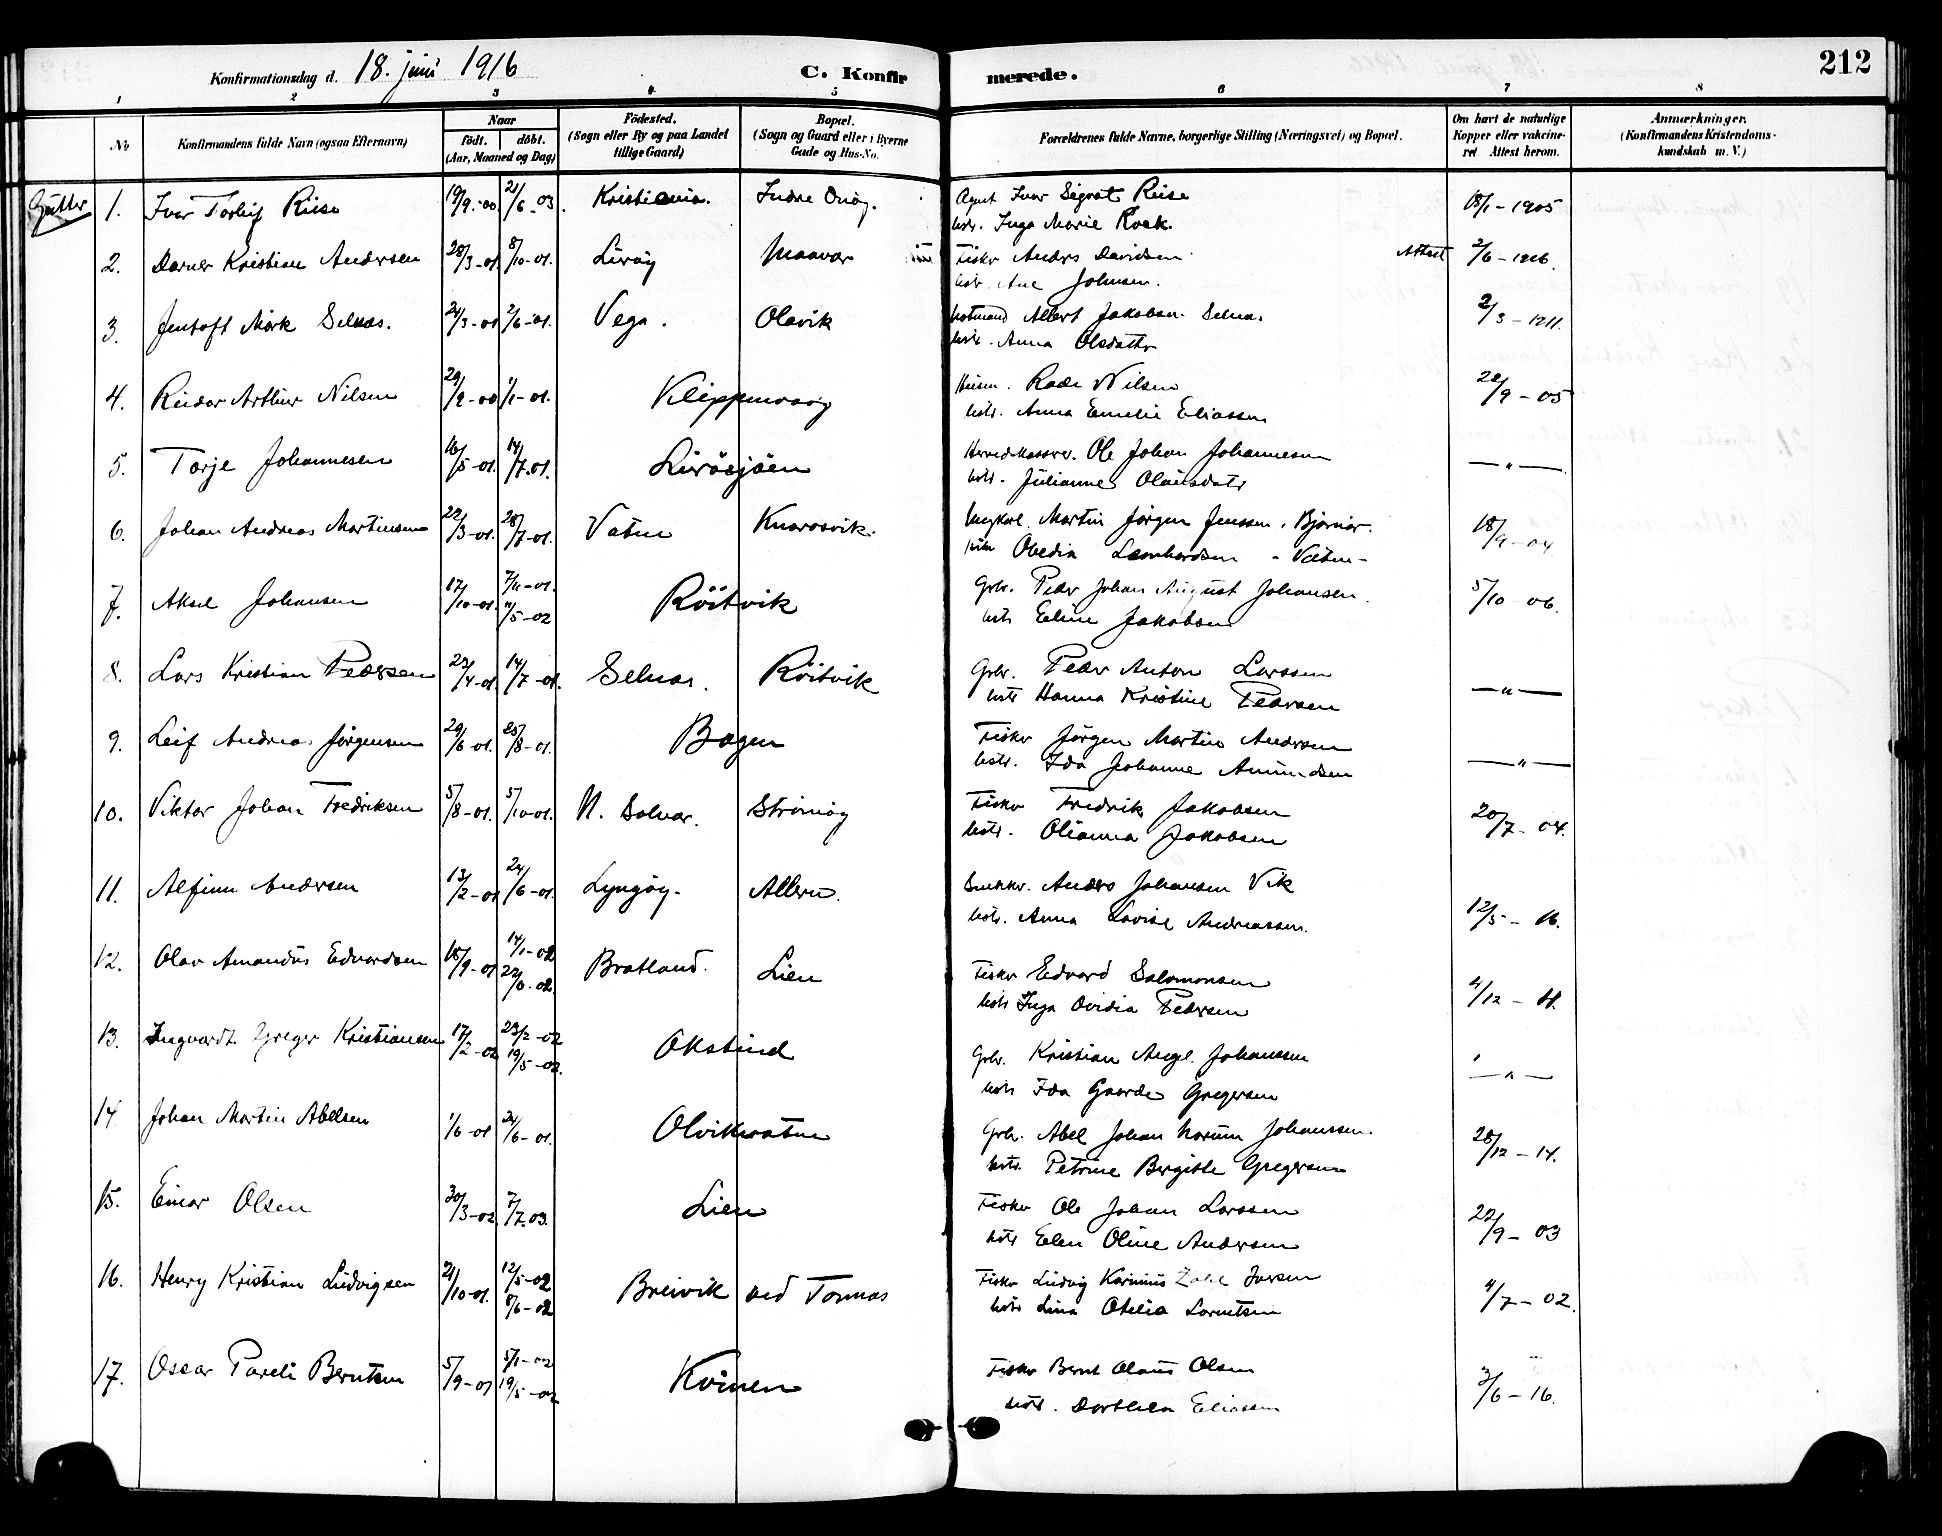 Konfirmationsdag d. 18. juni 1916 C. Konfir merede. 212
1 2 3 4 5 6 7 8
No Konfirmandens fulde Navn (ogsaa Efternavn) Naar født. døbt. (Aar, Maaned og Dag) Fødested. (Sogn eller By og paa Landet tillige Gaard) Bopæl. (Sogn og Gaard eller i Byerne Gade og Hus-No. Forældrenes fulde Navne, borgerlige Stilling (Næringsvei) og Bopæl. Om havt de naturlige Kopper eller vakcineret. Attest herom. Anmærkninger. (Konfirmandens Kristendomskundskab m. V.)
Gutter
1. Ivar Torleif Riise 19/9-00 21/6-03. Kristiania. Indre Agent Ivar Sigvat Riise 18/1-1905
hstr. Inga Marie
2. Kristian Andersen 28/3-01 8/10-01. Lurøy Maavær Fisker Anders Davidsen Attest 2/6-1916.
hstr. Ane Johnsen.
3. Jentoft Mørk Selnes. 24/3-01 2/6-01. Vega. Olavik Albert Jakobsen Selnes 2/3-1911.
hstr. Anna Olsdatter
4. Reidar Arthur Nilsen 29/2-00 1/1-01. Klippenvaag Nilsen 22/9-05
hstr. Anna Emelie Eliassen
5. Torje Johannesen 16/5-01. 14/7.01. Lurøsjøen Ole Johan Johannesen —"—
hstr. Julianne Olausdatr
6. Johan Andreas Martinsen 22/3-01. 28/7-01. Vatne Knarosvik. Ungkarl. Martin Jørgen Jenssen, 18/9-04
Obedia Leonhardsen - Vatne -
7. Aksel Johansen 17/10-01. 7/11-01. 11/5-02 Röitvik Grbr. Peder Johan August Johansen. 5/10-06.
hstr Eline Jakobsen
8. Lars Kristian Pedersen 23/4-01 14/7-01. Selnes. Röitvik Grbr. Peder Anton Larssen —"—
hstr Hanna Kristine Pedersen
9. Leif Andreas Jørgensen 29/6-01. 25/8-01. Bogen Fisker Jørgen Martin Andersen —"—
hstr. Ida Johanne Amundsen
10. Viktor Johan Fredriksen 5/8-01. 5/10-01. N. Solvær. Strømøy Fisker Fredrik Jakobsen 20/7-04.
hstr. Olianna Jakobsen
11. Alfinn Andersen 13/2-01 24/6-01. Lyngøy. Alleren. Anders Johansen Vik 12/5-16.
hstr. Anna Lovise Andreassen.
12. Olav Amandus Edvardsen 18/9-01 14/1-02 Bratland. Lien Fisker Edvard Salomonsen 4/12-11.
hstr Inga Ovidia Pedersen
13. Ingvardt Greger Kristiansen 17/2-02 23/2-02 19/5-02. Okstind Grbr. Kristian Angel. Johanssen —"—
hstr Ida Gregersen
14 Johan Martin Abelsen 1/6-01 24/6-01. Olvikvatne Grbr. Abel Johan Johanssen. 28/12-14.
hstr. Petrine Bergitte Gregersen
15. Einar Olsen 30/3-02. 7/7.03. Lien Fisker Ole Johan Larssen 22/9-03
hstr Elen Oline Andersen
16. Henry Kristian Ludvigsen 21/10-01. 12/5-02 8/6-02 Breivik ved Tonnes Fisker Ludvig Zahl Iversen 4/7-02.
hstr Lina Otelia Lorentsen
17. Oscar Pareli Berntsen 5/9-01 5/1-02 19/5-02 Kvinen Fisker Bernt Olaus Olsen 3/6-16.
hstr. Dorthea Eliassen